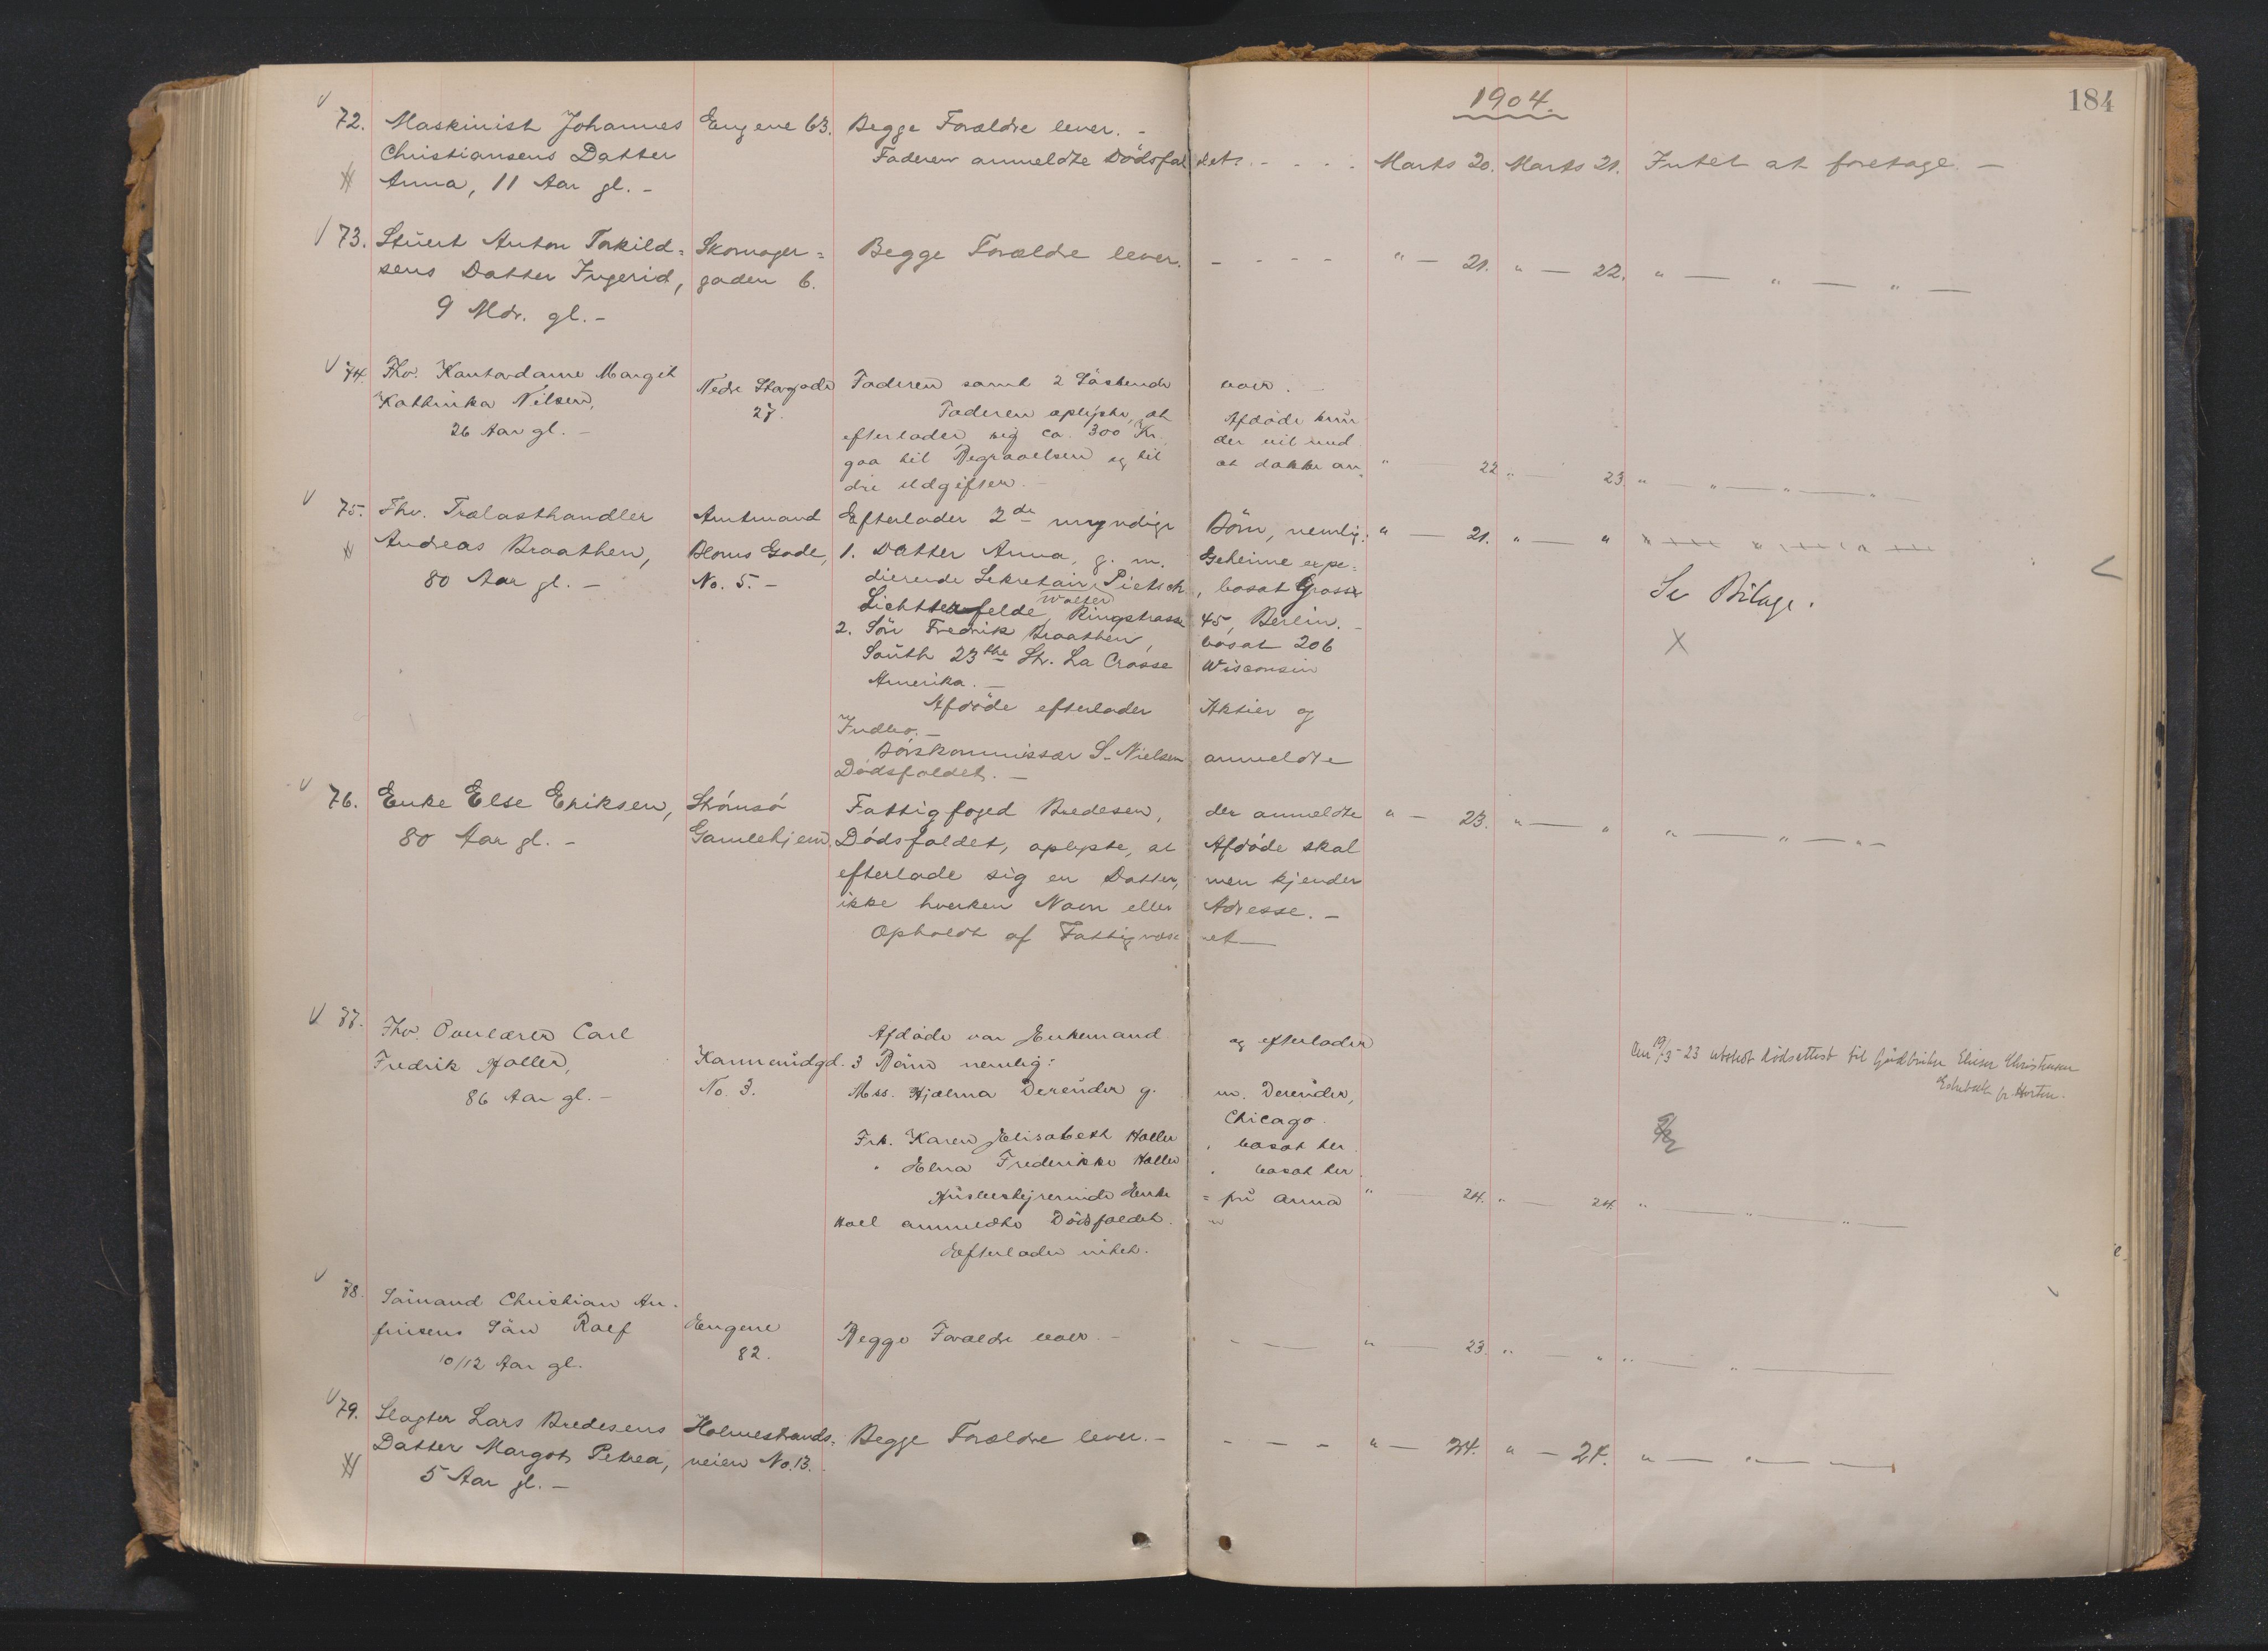 1904.
184
72. Maskinist Johannes Engene 63. Begge Forældre lever. –
Christiansens Datter Faderen anmeldte Dødsfaldet. - - - - Marts 20. Marts 21. Intet at foretage. –
Anna, 11 Aar gl. –
73. Stuert Anton Torkild= Skomager= Begge Forældre lever. - - - - " — 21. " — 22. " — " — " —
sens Datter Ingerid, gaden 6.
9 Mdr. gl. –
74. Fhv. Kontordame Margit Nedre Storgade Faderen samt 2 Söskende lever. –
Kathinka Nilsen, 27. Faderen oplyste, at Afdöde kun
26 Aar gl. – efterlader sig ca. 300 Kr. der vil med
gaa til Begravelsen og til at dække an= " — 22 " — 23. " — " — " — " —
dre Udgifter. –
75. Fhv. Trælasthandler Amtmand Efterlader 2de myndige Börn, nemlig: " — 21. " — "
Andreas Braathen, Bloms Gade, 1. Datter Anna, g. m. Geheime expe=
80 Aar gl. – No. 5. – dierende Sekretair Pietsch, bosat Gross Se Bilage.
Walter
Lichterfelde, Ringstrasse 45, Berlin. –
2. Sön Fredrik Braathen, bosat 206 X
South 23the Str. La Crosse Wisconsin
Amerika. –
Afdöde efterlader Aktier og
Indbo. –
Börskommissær S. Nielsen anmeldte
Dödsfaldet. –
76. Enke Else Eriksen, Strömsö Fattigfoged Bredesen, der anmeldte " — 23. " — " " — " — " –
80 Aar gl. – Gamlehjem. Dödsfaldet, oplyste, at Afdöde skal
efterlade sig en Datter, men kjender
ikke hverken Navn eller Adresse. –
Opholdt af Fattigvæsenet —
77. Fhv. Overlærer Carl Afdöde var Enkemand og efterlader
Fredrik Holler, Konnerudgd. 3 Börn nemlig:
86 Aar gl. – No. 3. Mss. Hjalma Derender g. m. Derender,
Chicago.
Den 19/3-23 utstedt dødsattest til Christensen
pr. Horten.
Frk. Karen Elisabeth Holler, bosat her.
" Elna Frederikke Holler, bosat her.
Husbestyrerinde Enke= fru Anna " — 24. " — 24. " — " — " —
Hoel anmeldte Dödsfaldet. "
Efterlader intet.
78. Sömand Christian An=
finsens Sön Rolf Engene Begge Forældre lever. – - — " — 23. " — " " — " —
10/12 Aar gl. 82.
79. Slagter Lars Bredesens Holmestrands= Begge Forældre lever. – - - - " — 24. " — 24. " — " —
Datter Margot Petrea, veien No. 13.
5 Aar gl. –